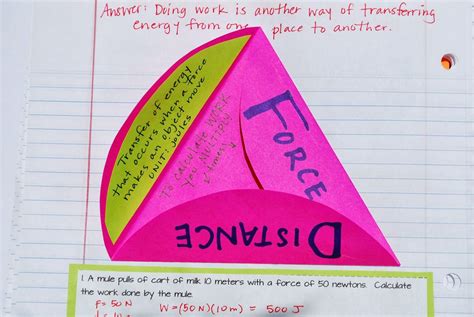 Answer: Doing work is another way of transferring
energy from one place to another.
Transfer of energy
that occurs when a force
makes an object move
UNIT: joules
TO CALCULATE WORK
YOU MULTIPLY
(times)
FORCE
DISTANCE
1. A mule pulls of cart of milk 10 meters with a force of 50 newtons. Calculate
the work done by the mule.
f= 50 N
W=(50N)(10m) = 500 J